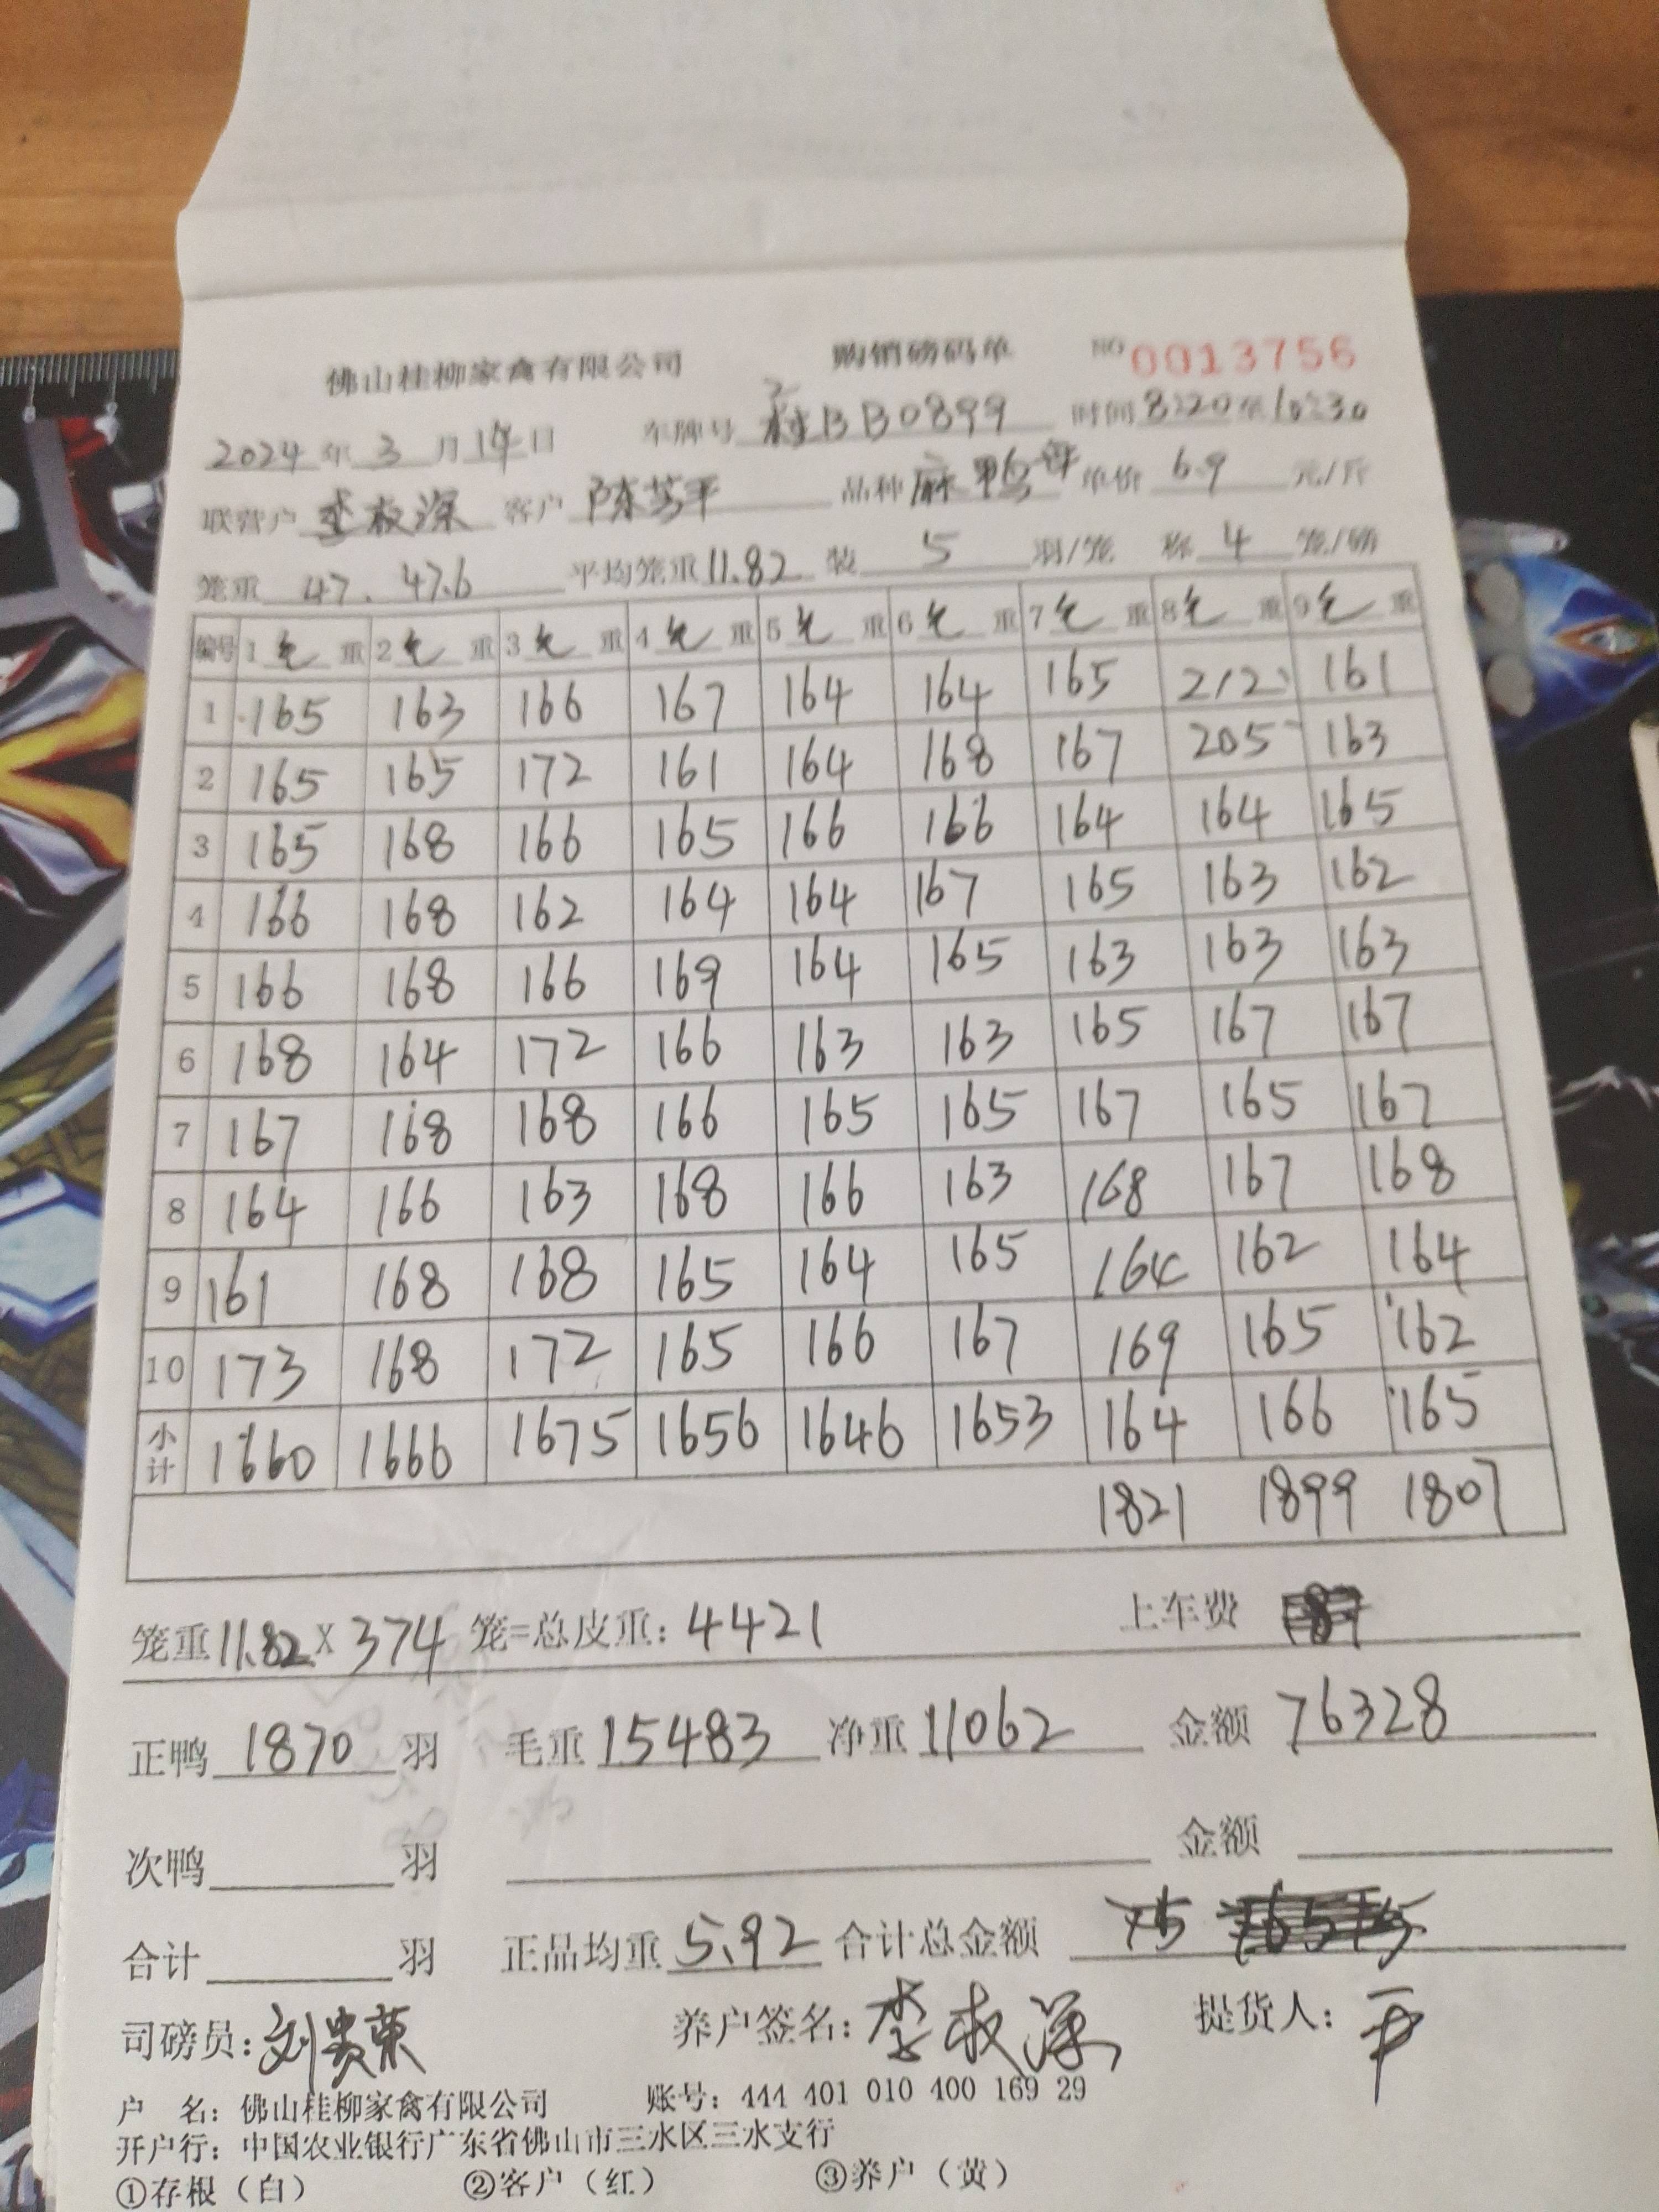 佛山桂柳家禽有限公司 购销磅码单 NO 0013756
2024 年 3 月 14 日 车牌号 桂BB0899 时间 8:20 至 10:30
联营户 李 深 客户 陈 平 品种 麻鸭 单价 6.9 元/斤
笼重 47. 47.6 平均笼重 11.82 装 5 羽/笼 称 4 笼/磅
编号 1 毛 重 2 毛 重 3 毛 重 4 毛 重 5 毛 重 6 毛 重 7 毛 重 8 毛 重 9 毛 重
1 165 163 166 167 164 164 165 212 161
2 165 165 172 161 164 168 167 205 163
3 165 168 166 165 166 166 164 164 165
4 166 168 162 164 164 167 165 163 162
5 166 168 166 169 164 165 163 163 163
6 168 164 172 166 163 163 165 167 167
7 167 168 168 166 165 165 167 165 167
8 164 166 163 168 166 163 168 167 168
9 161 168 168 165 164 165 164 162 164
10 173 168 172 165 166 167 169 165 162
小计 1660 1666 1675 1656 1646 1653 164 166 165
1821 1899 1807
笼重 11.82 X 374 笼=总皮重: 4421 上车费
正鸭 1870 羽 毛重 15483 净重 11062 金额 76328
次鸭 羽 金额
合计 羽 正品均重 5.92 合计总金额
司磅员: 刘贵荣 养户签名: 李 深 提货人: 平
户 名: 佛山桂柳家禽有限公司 账号: 444 401 010 400 169 29
开户行: 中国农业银行广东省佛山市三水区三水支行
①存根（白） ②客户（红） ③养户（黄）